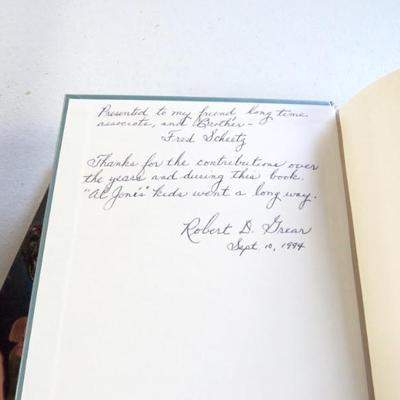 Presented to my friend long time
associate, and Brother -
Fred Scheetz
Thanks for the contributions over
the years and during this book.
"Al Jones" kids went a long way.
Robert D. Grear
Sept. 10, 1994